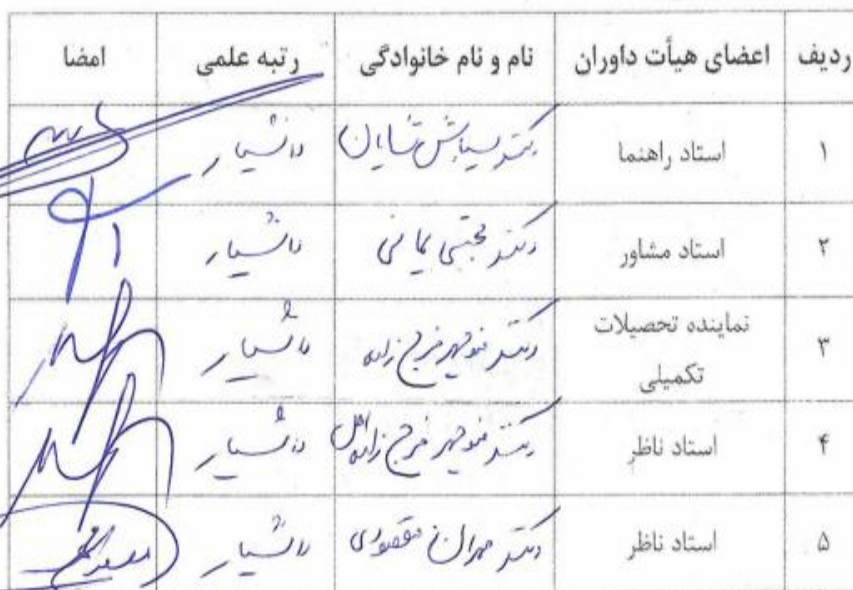 ردیف اعضای هیأت داوران نام و نام خانوادگی رتبه علمی امضا
۱ استاد راهنما دکتر سیاوش شایان دانشیار
۲ استاد مشاور دکتر مجتبی یمانی دانشیار
۳ نماینده تحصیلات تکمیلی دکتر منوچهر فرج زاده دانشیار
۴ استاد ناظر دکتر منوچهر فرج زاده اصل دانشیار
۵ استاد ناظر دکتر مهران مقصودی دانشیار